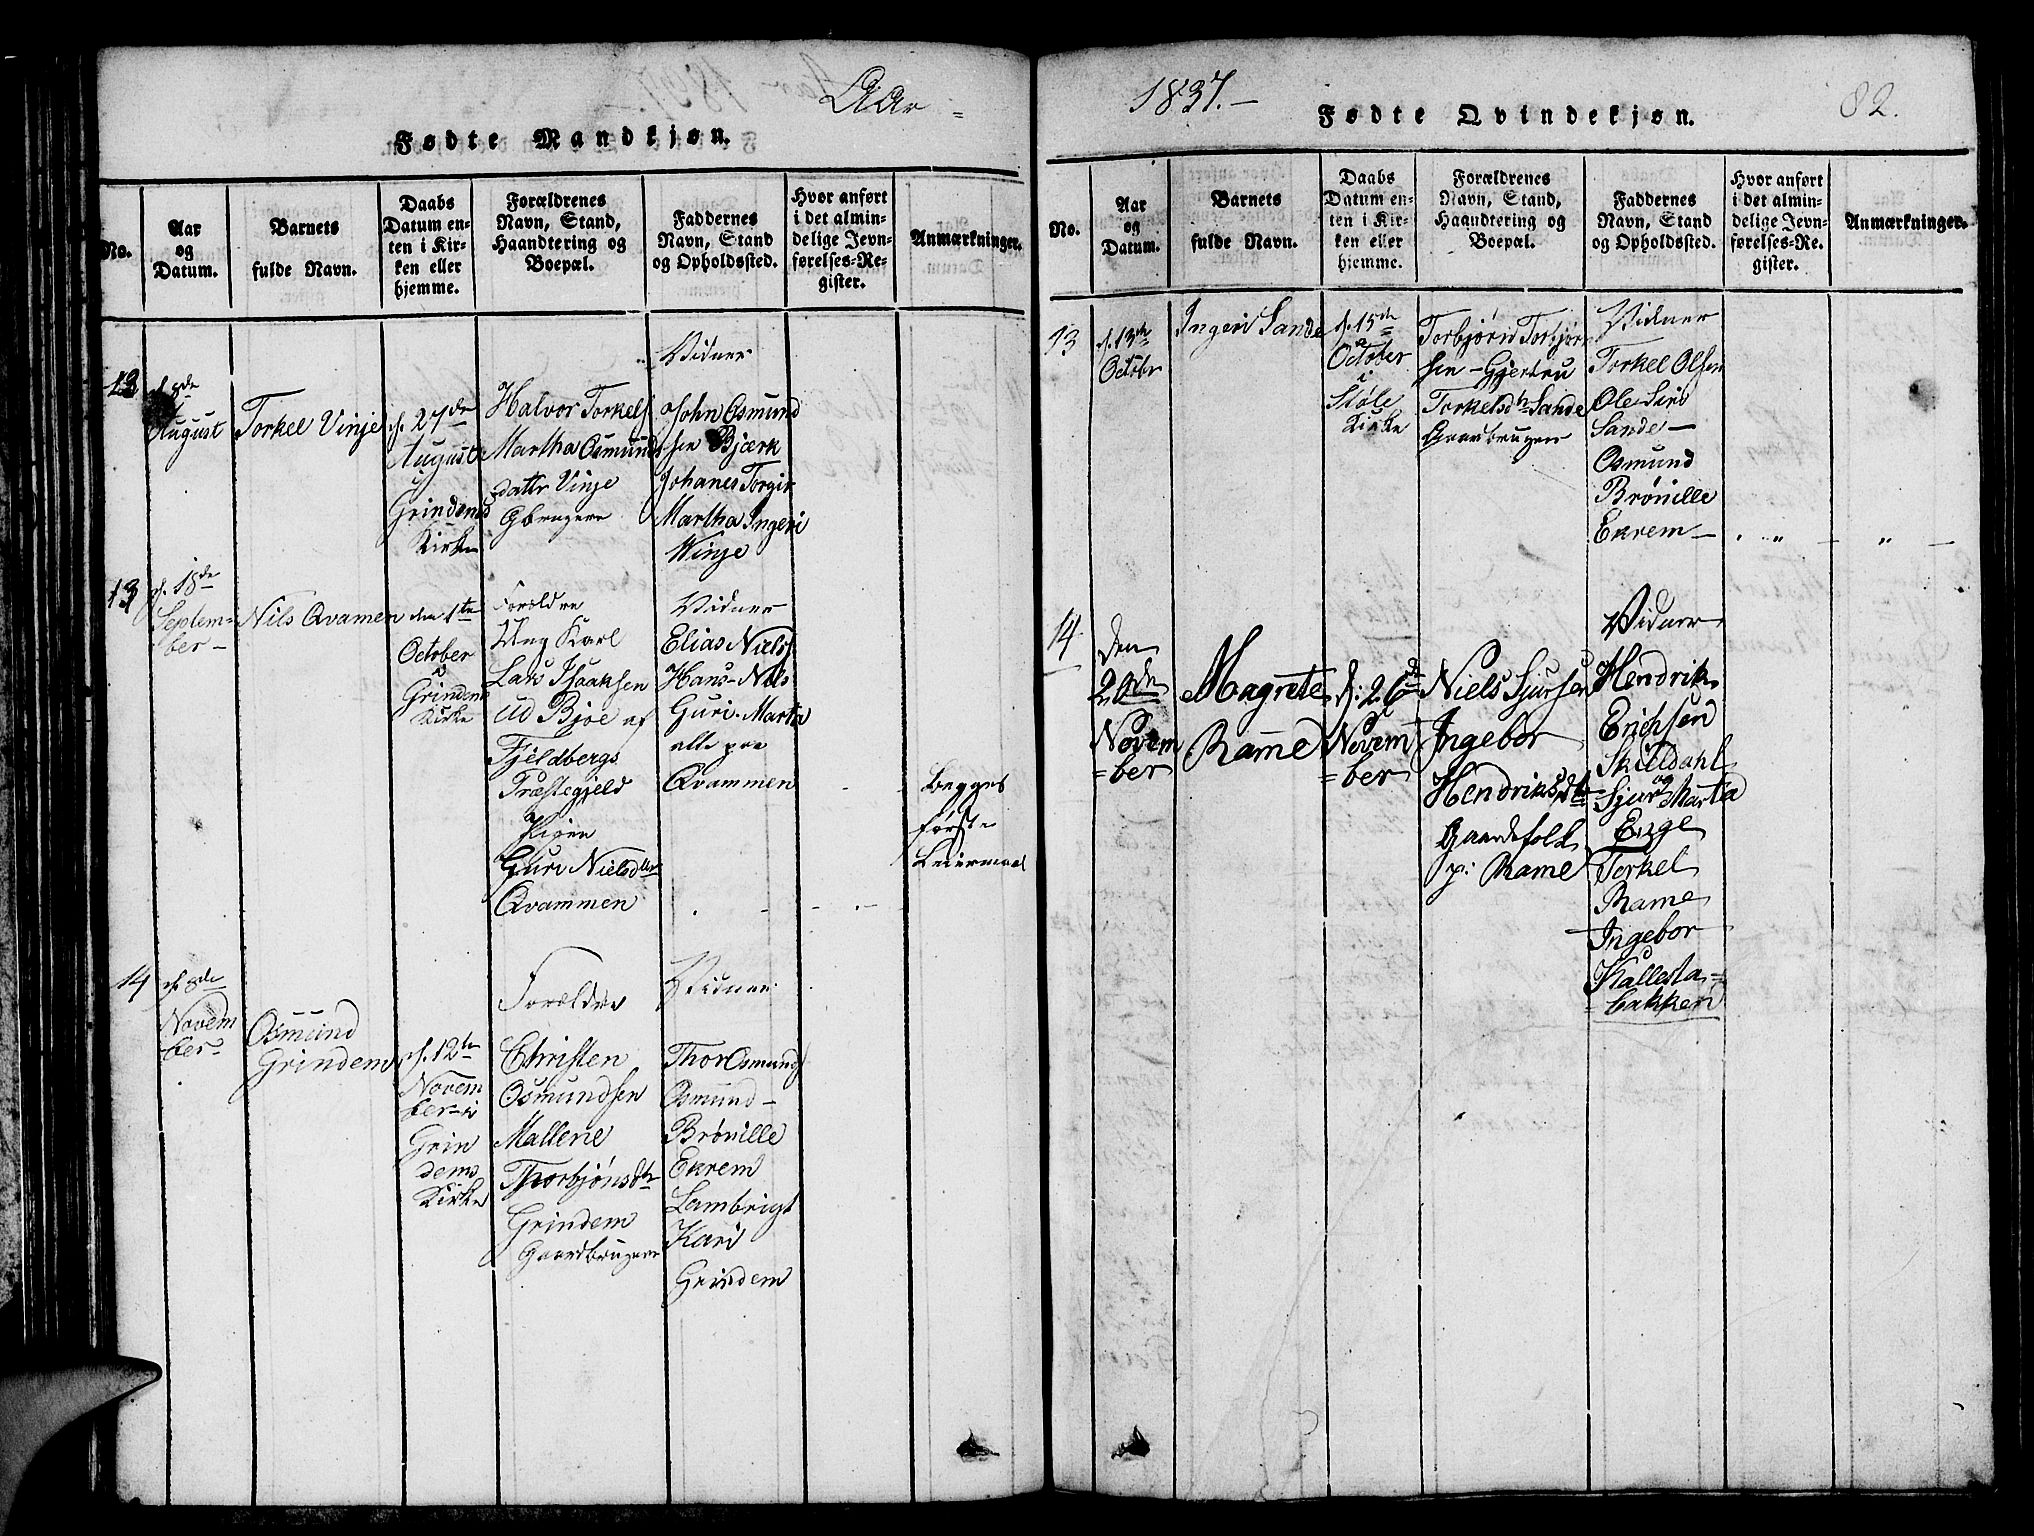 Aar
1837.
82.
Fødte Mandkjøn.
Fødte Qvindekjøn.
No.
Aar
og
Datum.
Barnets
fulde Navn.
Daabs
Datum en-
ten i Kir-
ken eller
hjemme.
Forældrenes
Navn, Stand,
Haandtering og
Boepæl.
Faddernes
Navn, Stand
og Opholdssted.
Hvor anført
i det almin-
delige Jevn-
førelses-Re-
gister.
Anmærkninger.
d. 8de
August
Torkel Vinje
d. 27de
August
i
Grindems
Kirke
Halvor Torkels
Martha Osmunds
dattr Vinje
Gbrugere
Vidner
John Osmund
sen Bjærk
Johanes Torgir
Martha Ingeri
Winje
13
d. 18de
Septem-
ber
Nils Qvamen
den 1te
October
i
Grindems
Kirke
Forældre
Ung Karl
Lars Isaaksen
Ud Bjoe af
Fjeldbergs
Præstegjeld
Pigen
Guri Nielsdtter
Qvammen
Vidner
Elias Niels
Hans Nils
Guri Marta
alle paa
Qvammen
Begges
første
Leiermaal
14
d. 8de
Novem
ber
Osmund
Grindem
d. 12te
Novem
ber i
Grin
dems
Kirke
Forældre
Christen
Osmundsen
Mallene
Thorbjønsdtr
Grindem
Gaardbrugere
Vidner
Thor Osmund
Osmund
Brønille
Ekrem
Lambrigt
Kari
Grindem
No.
Aar
og
Datum.
Barnets
fulde Navn.
Daabs
Datum en-
ten i Kir-
ken eller
hjemme.
Forældrenes
Navn, Stand,
Haandtering og
Boepæl.
Faddernes
Navn, Stand
og Opholdssted.
Hvor anført
i det almin-
delige Jevn-
førelses-Re-
gister.
Anmærkninger.
13
d. 13de
Octobr
Ingeri Sande
d. 15de
October
i
Støle
Kirke
Torbjørn Torbjørn
sen - Gjertru
Torkelsdtr Sande
Gaardbrugere
Vidner
Torkel Olsen
Ole Siri
Sande
Osmund
Brønille
Ekrem
14
Den
20de
Novem
=ber
Magrete
Rame
d: 26de
Novem
=ber
Niels Sjursen
Ingebor
Hendriksdtr
Gaardsfolk
p: Rame
Vidner
Hendrik
Erichsen
Skieldahl
Sjur og Marta
Enge
Torkel
Rame
Ingebor
Kallesta=
=bakken